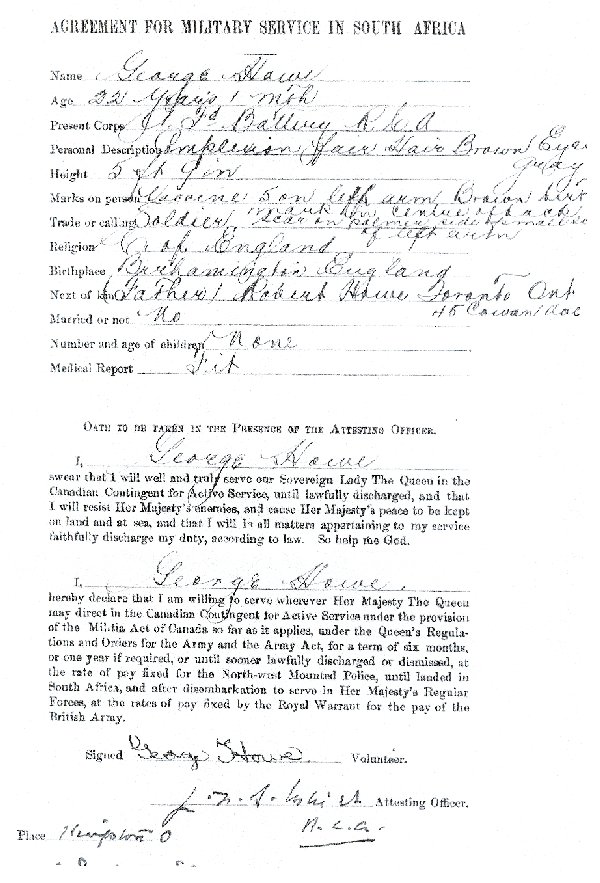 AGREEMENT FOR MILITARY SERVICE IN SOUTH AFRICA
Name George Howe
Age 22 Years 1 mth
Present Corps Fd Battery R.C.A
Personal Description Complexion Fair Hair Brown Eyes
Gray
Height 5 ft 9 in
Marks on person Vaccine: 5 on left arm, Brown birth
mark on centre of back
Trade or calling Soldier, scar on palmer side
of left arm
Religion C. of England
Birthplace England
Next of kin (Father) Robert Howe Toronto Ont
45 Cowan Ave
Married or not No
Number and age of children None
Medical Report Fit
OATH TO BE TAKEN IN THE PRESENCE OF THE ATTESTING OFFICER.
I, George Howe
swear that I will well and truly serve our Sovereign Lady The Queen in the
Canadian Contingent for Active Service, until lawfully discharged, and that
I will resist Her Majesty's enemies, and cause Her Majesty's peace to be kept
on land and at sea, and that I will in all matters appertaining to my service
faithfully discharge my duty, according to law. So help me God.
I, George Howe.
hereby declare that I am willing to serve wherever Her Majesty The Queen
may direct in the Canadian Contingent for Active Service under the provision
of the Militia Act of Canada so far as it applies, under the Queen's Regula-
tions and Orders for the Army and the Army Act, for a term of six months,
or one year if required, or until sooner lawfully discharged or dismissed, at
the rate of pay fixed for the North-west Mounted Police, until landed in
South Africa, and after disembarkation to serve in Her Majesty's Regular
Forces, at the rates of pay fixed by the Royal Warrant for the pay of the
British Army.
Signed George Howe Volunteer.
Attesting Officer.
R.C.A.
Place Kingston O